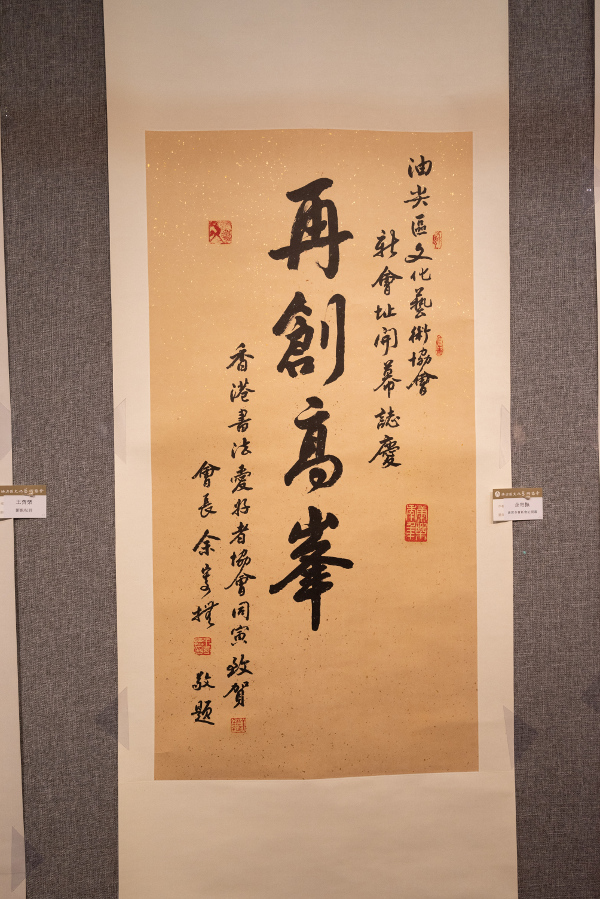 油尖區文化藝術協會
新會址開幕誌慶
再創高峯
香港書法愛好者協會同寅致賀
會長余寄撫敬題